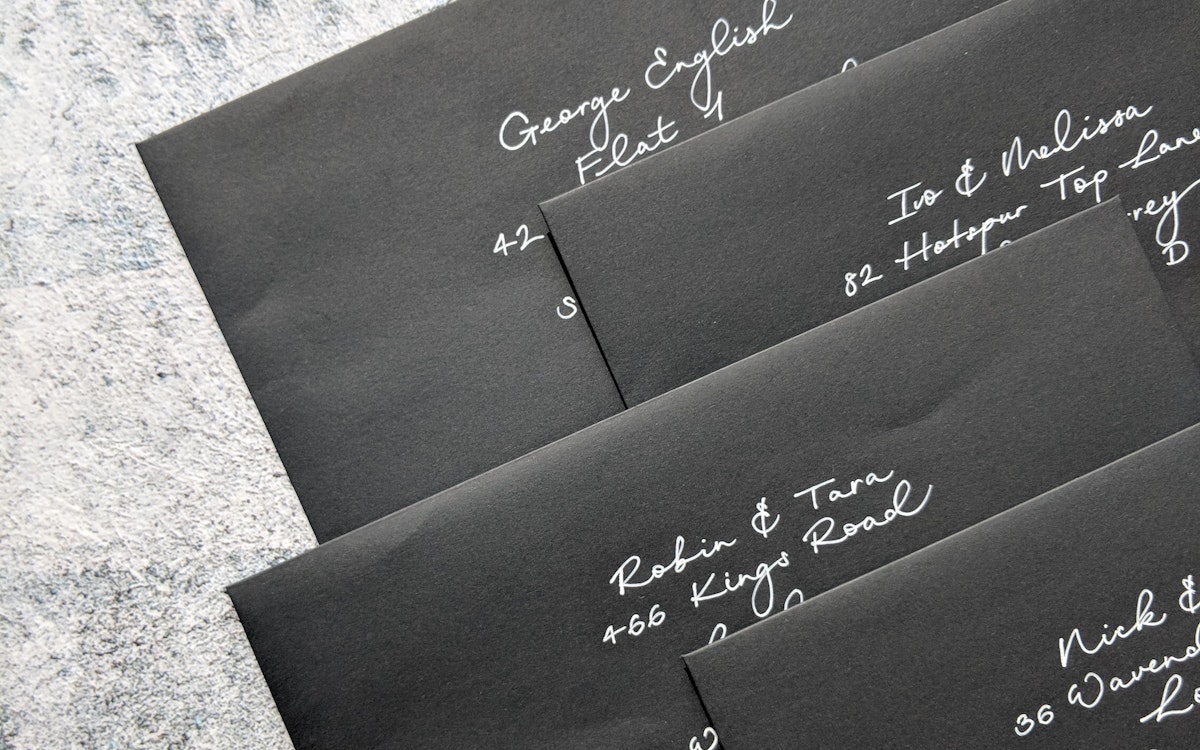 George English
Flat 1
42
S
Ivo & Melissa
82 Hotspur Top Lane
D
Robin & Tara
466 Kings Road
W
Nick &
36